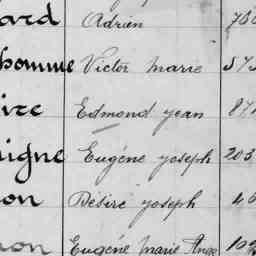 ard Adrien
homme Victor Marie
ire Edmond Jean 87
igne Eugéne Joseph 203
on Désiré Joseph
on Eugéne Marie Ange 10